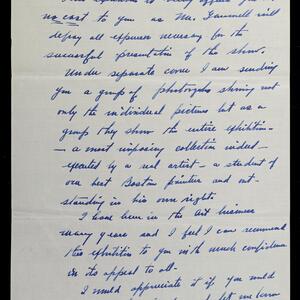 This exhibition is being offered you at
no cost to you as Mr. will
defray all expenses necessary for the
successful presentation of the show.
Under separate cover I am sending
you a group of photographs showing not
only the individual pictures but as a
group they show the entire exhibition -
- a most imposing collection indeed -
executed by a real artist - a student of
our best Boston painters and out-
standing in his own right.
I have been in the Art business
many years and I feel I can recommend
this exhibition to you with much confidence
in its appeal to all.
I would appreciate it if you would
let me know